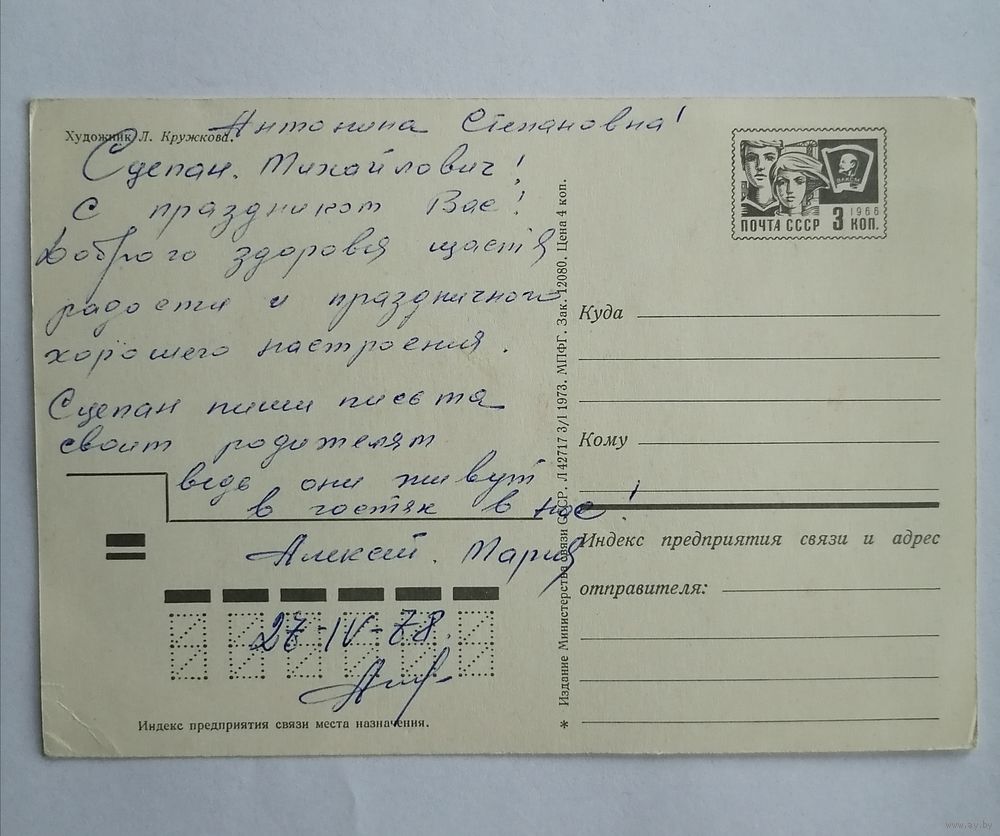 Художник Л. Кружкова.
Антонина Степановна!
Сцепан. Михайлович!
С праздником Вас!
Доброго здоровья щастя
радости и праздничного
хорошего настроения.
Сцепан пиши письма
своим родителям
ведь они живут
в гостях в нас!
Алексей. Мария
27-IV-78.
Индекс предприятия связи места назначения.
* Издание Министерства связи СССР. Л 42717 3/I 1973. МПФГ. Зак. 12080. Цена 4 коп.
ВЛКСМ
1966
ПОЧТА СССР 3 КОП.
Куда
Кому
Индекс предприятия связи и адрес
отправителя:
www.ay.by